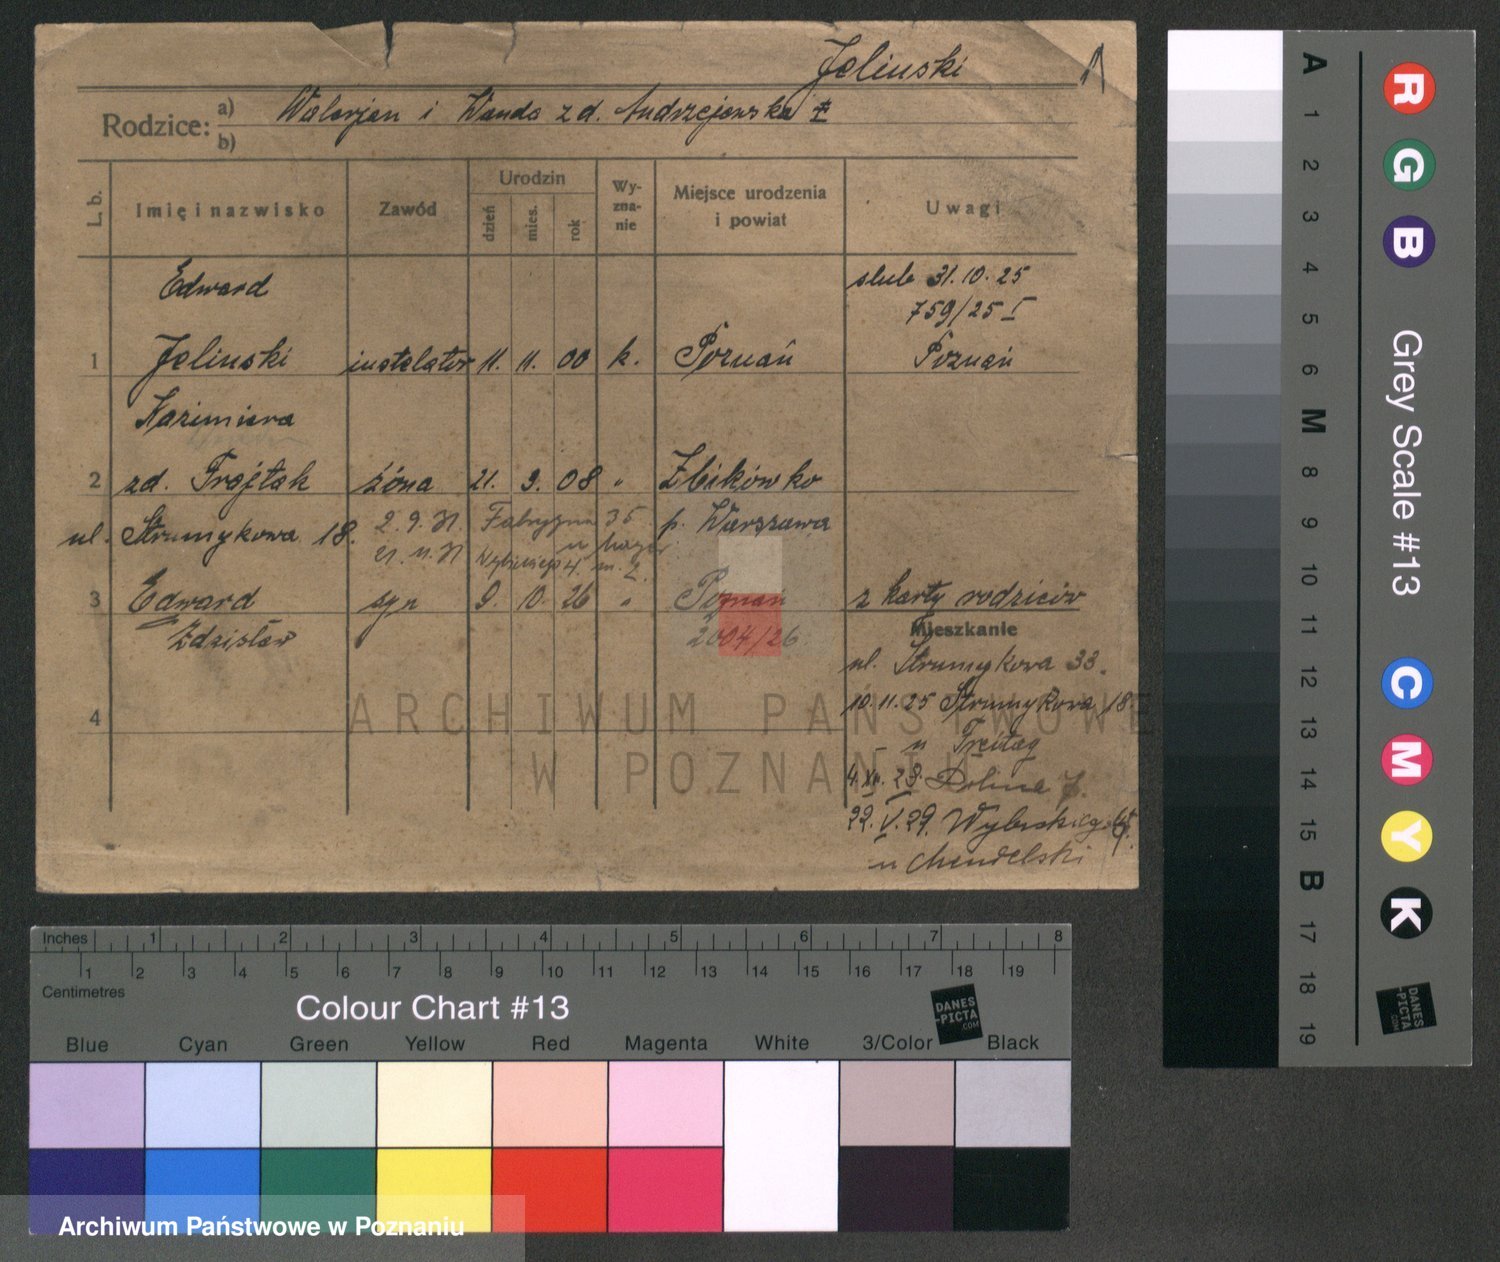 Jeliński
Rodzice: a) Walerjan i Wanda z d. Andrzejewska
b)
L. b. Imię i nazwisko Zawód Urodzin dzień mies. rok Wy-zna-nie Miejsce urodzenia i powiat Uwagi
Edward ślub 31.10.25
759/25 I
1 Jeliński instalator 11. 11. 00 k. Poznań Poznań
Kazimiera
2 zd. Trojtak żona 21. 9. 08 " Zbikówko
ul. Strumykowa 18. 2.9.31. Fabryczna 35 p. Warszawa
21.11.31 m. 2.
3 Edward syn 9. 10. 26 " Poznań z karty rodziców
Zdzisław 2004/26 Mieszkanie
ul. Strumykowa 33.
4 10.11.25 Strumykowa 18.
u Freitag
4.XII.28. Dolina 7.
22.V.29. Wybickiego
u Mendelski
ARCHIWUM PAŃSTWOWE
W POZNANIU
Inches 1 2 3 4 5 6 7 8
1 2 3 4 5 6 7 8 9 10 11 12 13 14 15 16 17 18 19
Centimetres
Colour Chart #13
DANES
-PICTA
.COM
Blue Cyan Green Yellow Red Magenta White 3/Color Black
Archiwum Państwowe w Poznaniu
A 1 2 3 4 5 6 M 8 9 10 11 12 13 14 15 B 17 18 19
R G B
Grey Scale #13
C M Y K
DANES
-PICTA
.COM